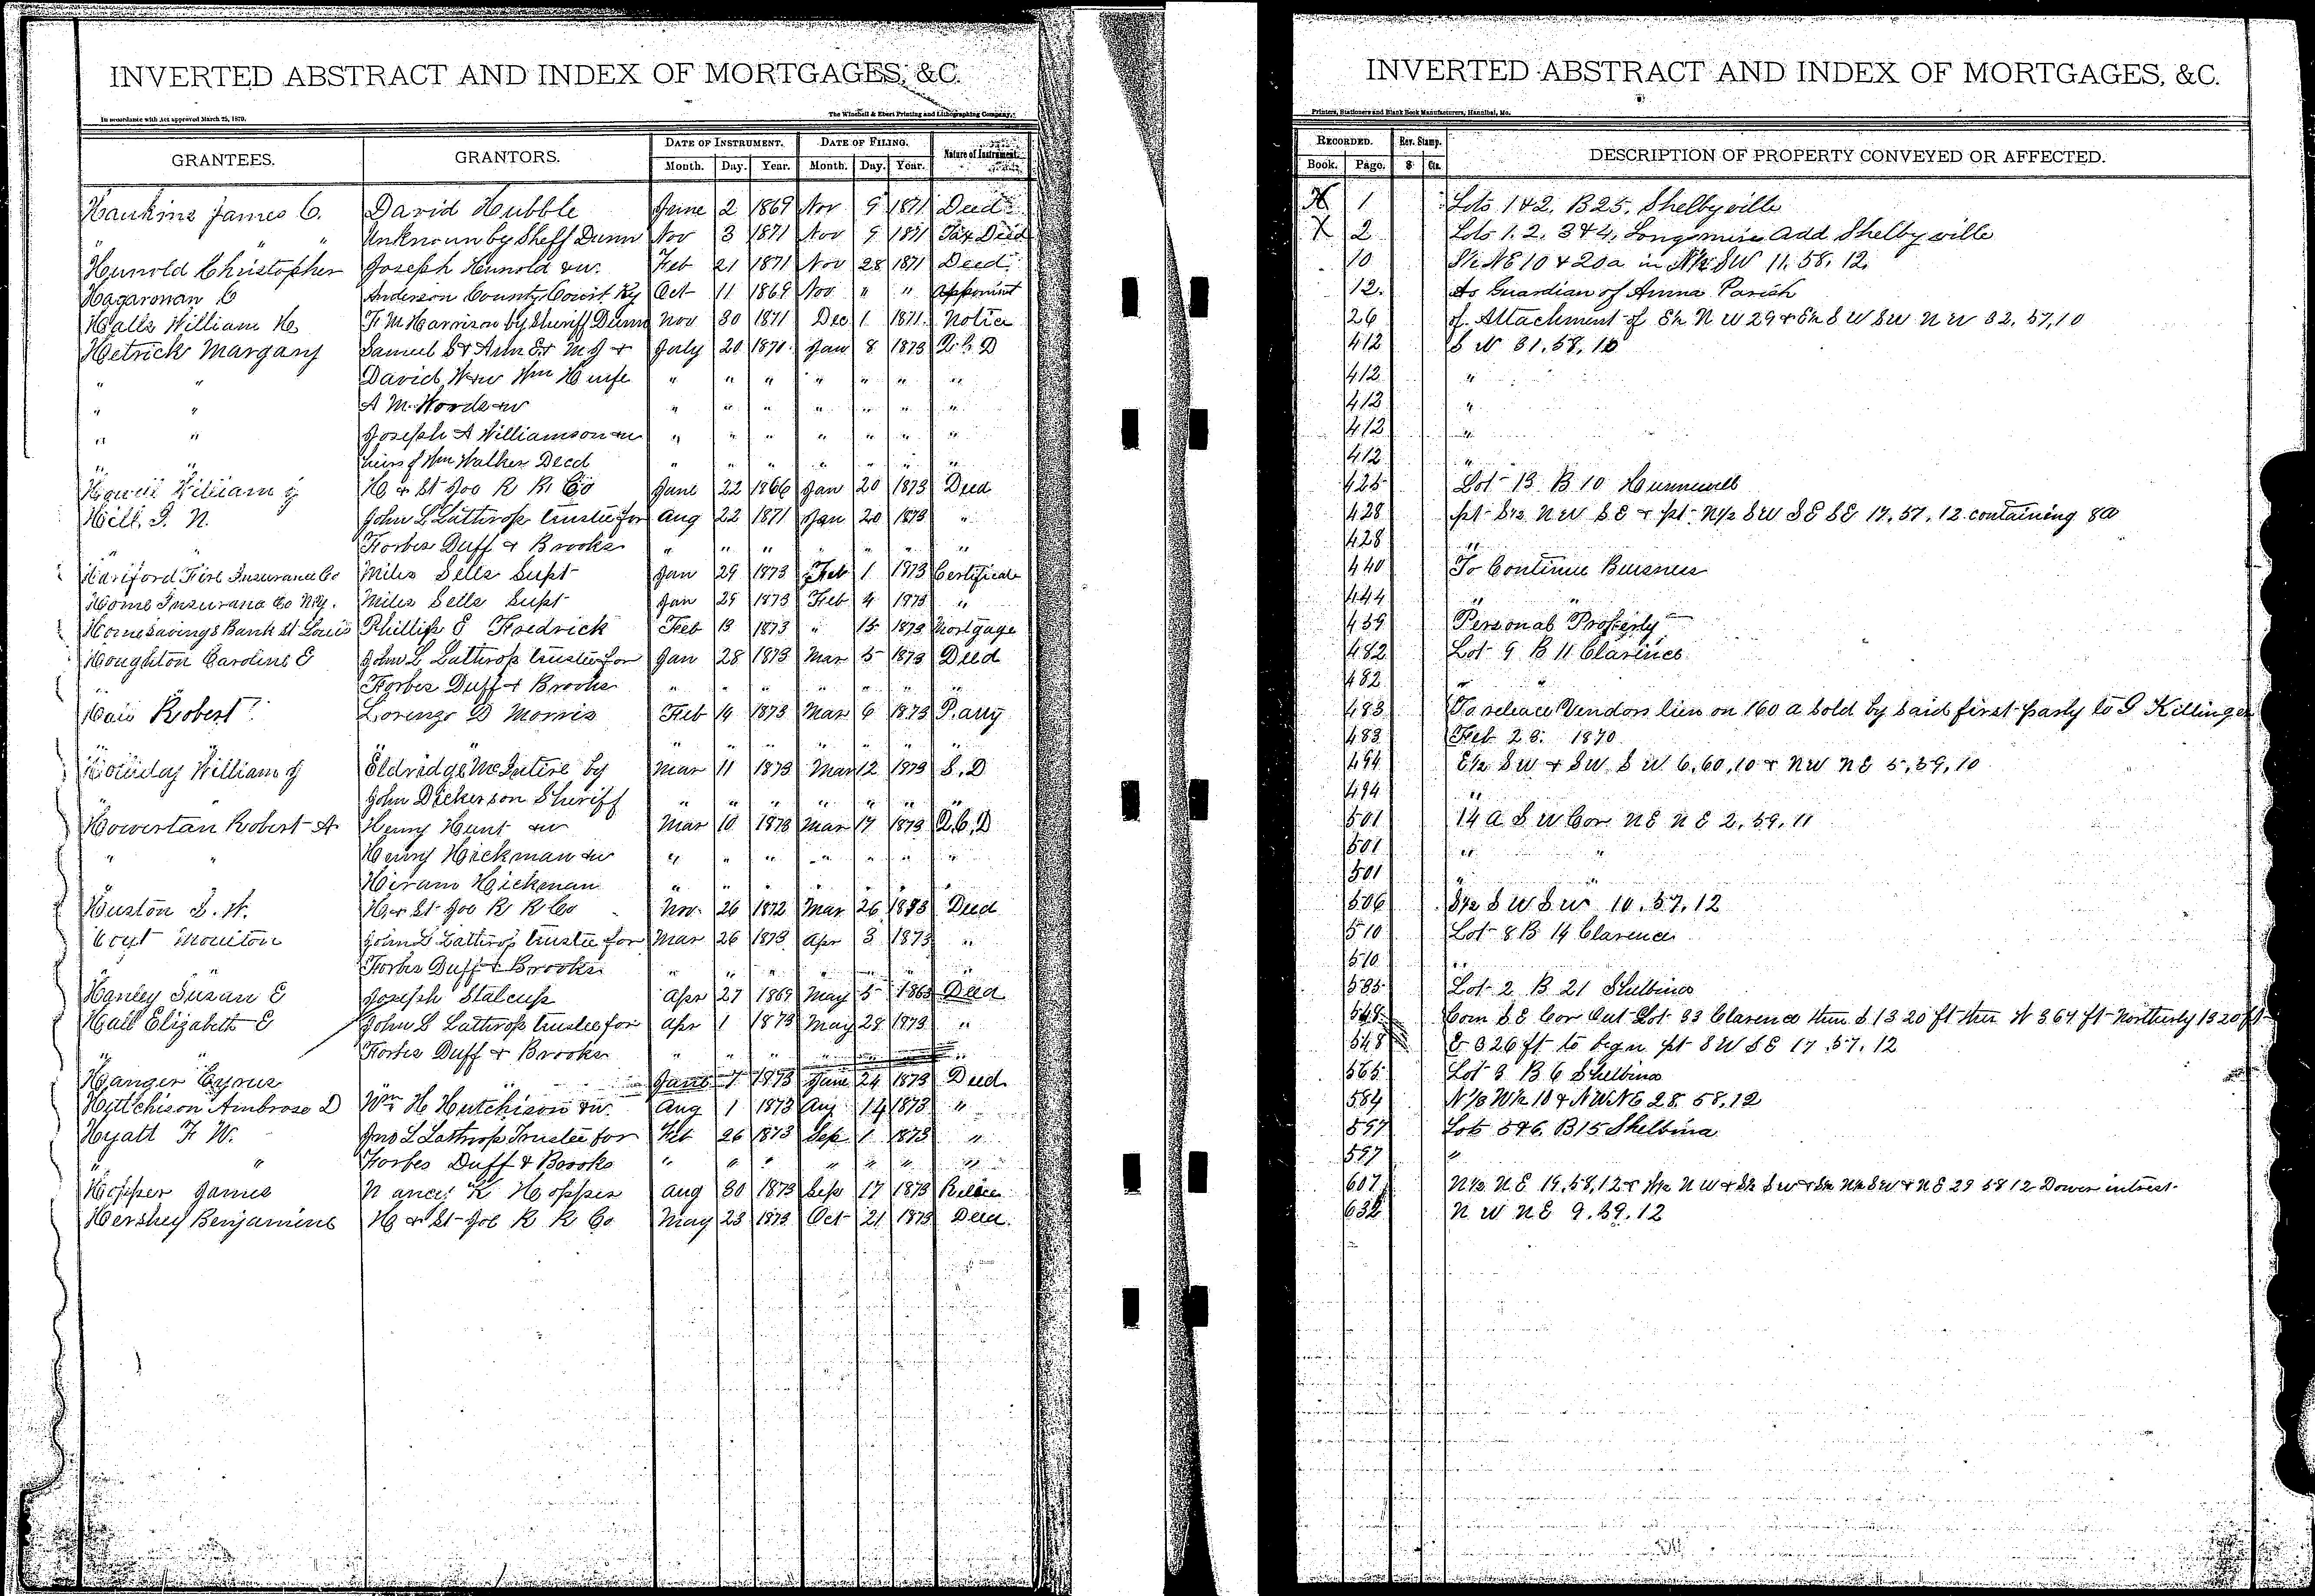 INVERTED ABSTRACT AND INDEX OF MORTGAGES, &C.
In accordance with Act approved March 25, 1870. The Winchell & Ebert Printing and Lithographing Company,
GRANTEES. GRANTORS. DATE OF INSTRUMENT. DATE OF FILING. Nature of Instrument
Month. Day. Year. Month. Day. Year.
Hankins James C. David Hubble June 2 1869 Nov 9 1871 Deed
" " Unknown by Sheff Dunn Nov 3 1871 Nov 9 1871 Tax Deed
Hunold Christopher Joseph Hunold & w. Feb 21 1871 Nov 28 1871 Deed
Hagaronan C Anderson County Court Ky Oct 11 1869 Nov " " Appoint
Halls William H F. M Harrison by Sheriff Dunn Nov 30 1871 Dec 1 1871 Notice
Hetrick Margary Samuel S & Ann E & M J & July 20 1870 Jan 8 1873 Q. C. D
" " David W & w Wm H wife " " " " " " "
" " A M. Wood & w " " " " " " "
" " Joseph A Williamson & w " " " " " " "
" heirs of Wm Walker Decd " " " " " " "
William J H & St Joe R R Co June 22 1866 Jan 20 1873 Deed
Hill, J. N. John L Lathrop trustee for Aug 22 1871 Jan 20 1873 "
" Forbes Duff & Brooks " " " " " " "
Hartford Fire Insurance Co Miles Sells Supt Jan 29 1873 Feb 1 1873 Certificate
Home Insurance Co N.Y. Miles Sells Supt Jan 29 1873 Feb 4 1873 "
Home Savings Bank St Louis Phillip E Fredrick Feb 13 1873 " 15 1873 Mortgage
Houghton Caroline E John L Lathrop trustee for Jan 28 1873 Mar 5 1873 Deed
Forbes Duff & Brooks " " " " " " "
Robert Lorenzo D Morris Feb 14 1873 Mar 6 1873 P. atty
" " " " " " " "
William J Eldridge McIntire by Mar 11 1873 Mar 12 1873 S. D
John Dickerson Sheriff " " " " " " "
Howertan Robert A Henry Hunt & w Mar 10 1873 Mar 17 1873 Q. C. D
" " Henry Hickman & w " " " " " " "
Hiram Hickman " " " " " " "
Huston S. W. H & St Joe R R Co Nov 26 1872 Mar 26 1873 Deed
Hoyt Moulton John L Lathrop trustee for Mar 26 1873 Apr 3 1873 "
" Forbes Duff & Brooks " " " " " " "
Hanley Susan E Joseph Stalcup Apr 27 1869 May 5 1863 Deed
Hall Elizabeth E John L Lathrop trustee for Apr 1 1873 May 28 1873 "
" " Forbes Duff & Brooks " " " " " " "
Hanger Cyrus June 7 1873 June 24 1873 Deed
Hutchison Ambrose D Wm H Hutchison & w. Aug 1 1873 Aug 14 1873 "
Hyatt F. W. Jno L Lathrop Trustee for Feb 26 1873 Sep 1 1873 "
" " Forbes Duff & Brooks " " " " " " "
Hopper James Nancy K Hopper Aug 30 1873 Sep 17 1873 Release
Hershey Benjamine H & St Joe R R Co May 23 1873 Oct 21 1873 Deed.
INVERTED ABSTRACT AND INDEX OF MORTGAGES, &C.
Printers, Stationers and Blank Book Manufacturers, Hannibal, Mo.
RECORDED. Rev. Stamp. DESCRIPTION OF PROPERTY CONVEYED OR AFFECTED.
Book. Page. $ Cts.
X 1 Lots 1 & 2. B 25. Shelbyville
X 2 Lots 1. 2. 3 & 4, Longmire Add Shelbyville
10 S½ NE 10 & 20a in N½ SW 11. 58. 12.
12. As Guardian of Anna Parish
26 of Attachment of E½ N W 29 & E½ S W SW N W 32, 57, 10
412 S W 31, 58, 10
412 "
412 "
412 "
412 "
425 Lot 13 B 10 Hunnewell
428 pt S½ N W S E & pt N½ SW SE SE 17, 57, 12 containing 8 a
428 "
440 To Continue Buisness
444 "
459 Personal Property
482 Lot 9 B 11 Clarence
482 "
483 To release Vendors lien on 160 a sold by said first party to J Killinger
483 Feb 28. 1870
494 E½ S W & SW S W 6, 60, 10 & NW NE 5, 59, 10
494 "
501 14 a S W Cor NE NE 2, 59, 11
501 " "
501 "
506 S½ S W S W 10. 57, 12
510 Lot 8 B 14 Clarence
510 "
535 Lot 2 B 21 Shelbina
548 Com S E Cor Out Lot 33 Clarence then S 1320 ft then W 364 ft Northerly 1320 ft
548 E 326 ft to begn pt SW SE 17. 57. 12
565 Lot 3 B 6 Shelbina
584 N½ W½ 18 & NW NE 28. 58. 12
597 Lots 5 & 6. B 15 Shelbina
597 "
607 N½ NE 19, 58, 12 & N½ N W & S½ SW & S½ N½ SW & NE 29 58 12 Dower intrest
632 N W NE 9. 59. 12